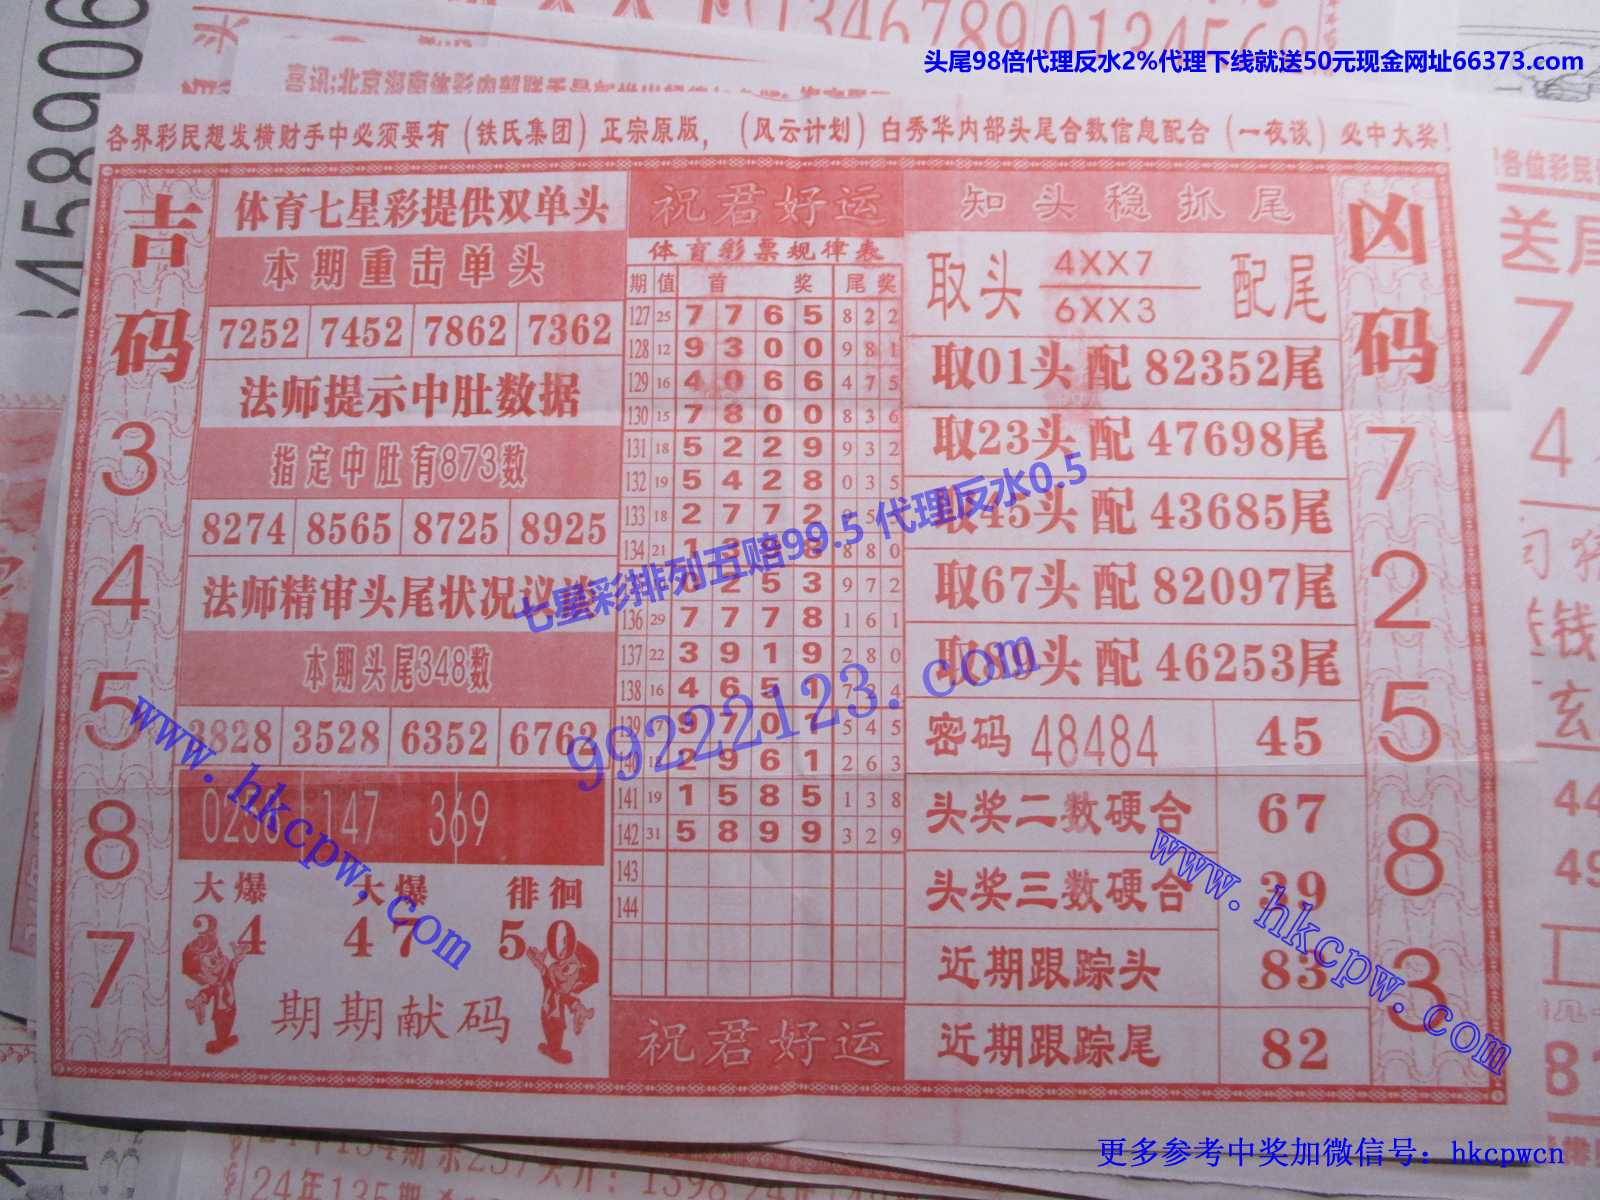 头尾98倍代理反水2%代理下线就送50元现金网址66373.com
各界彩民想发横财手中必须要有（铁氏集团）正宗原版，（风云计划）白秀华内部头尾合数信息配合（一夜谈）必中大奖！
吉码
3
4
5
8
7
体育七星彩提供双单头
本期重击单头
7252 7452 7862 7362
法师提示中肚数据
指定中肚有873数
8274 8565 8725 8925
法师精审头尾状况议
本期头尾348数
3828 3528 6352 6762
147 369
大爆 大爆 徘徊
34 47 50
期期献码
祝君好运
体育彩票规律表
期 值 首 奖 尾 奖
127 25 7 7 6 5 8 2 2
128 12 9 3 0 0 9 8 1
129 16 4 0 6 6 4 7 5
130 15 7 8 0 0 8 3 6
131 18 5 2 2 9 9 3 2
132 19 5 4 2 8 0 3 5
133 18 2 7 7 2 5
134 21 1 3 9 8 8 8 0
2 5 3 9 7 2
136 29 7 7 7 8 1 6 1
137 22 3 9 1 9 2 8 0
138 16 4 6 5 1 7 4
139 9 7 0 5 4 5
140 2 9 6 1 2 6 3
141 19 1 5 8 5 1 3 8
142 31 5 8 9 9 3 2 9
143
144
祝君好运
知头稳抓尾
取头 4XX7 配尾
6XX3
取01头 配 82352尾
取23头 配 47698尾
取45头 配 43685尾
取67头 配 82097尾
取89头 配 46253尾
密码 48484 45
头奖二数硬合 67
头奖三数硬合 39
近期跟踪头 83
近期跟踪尾 82
凶码
7
2
5
8
3
七星彩排列五赔99.5 代理反水0.5
99222123.com
www.hkcpw.com
www.hkcpw.com
更多参考中奖加微信号：hkcpwcn